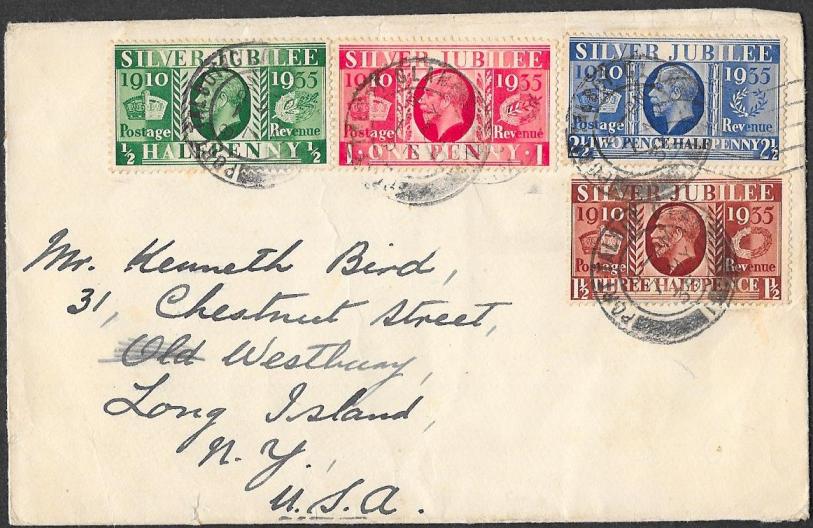 SILVER JUBILEE
1910 1935
Postage Revenue
½ HALFPENNY ½
SILVER JUBILEE
1910 1935
Postage Revenue
1 · ONE PENNY · 1
SILVER JUBILEE
1910 1935
Postage Revenue
2½ TWO PENCE HALFPENNY 2½
SILVER JUBILEE
1910 1935
Postage Revenue
1½ THREE HALFPENCE 1½
Mr. Kenneth Bird,
31, Chestnut Street,
Old Westbury,
Long Island,
N.Y.,
U.S.A.